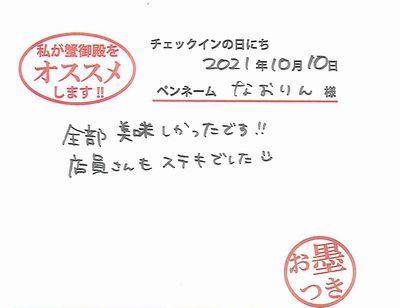 私が蟹御殿を
オススメ
します!!
チェックインの日にち
2021年10月10日
ペンネーム なおりん 様
全部 美味しかったです!!
店員さんも ステキでした☺
お墨
つき